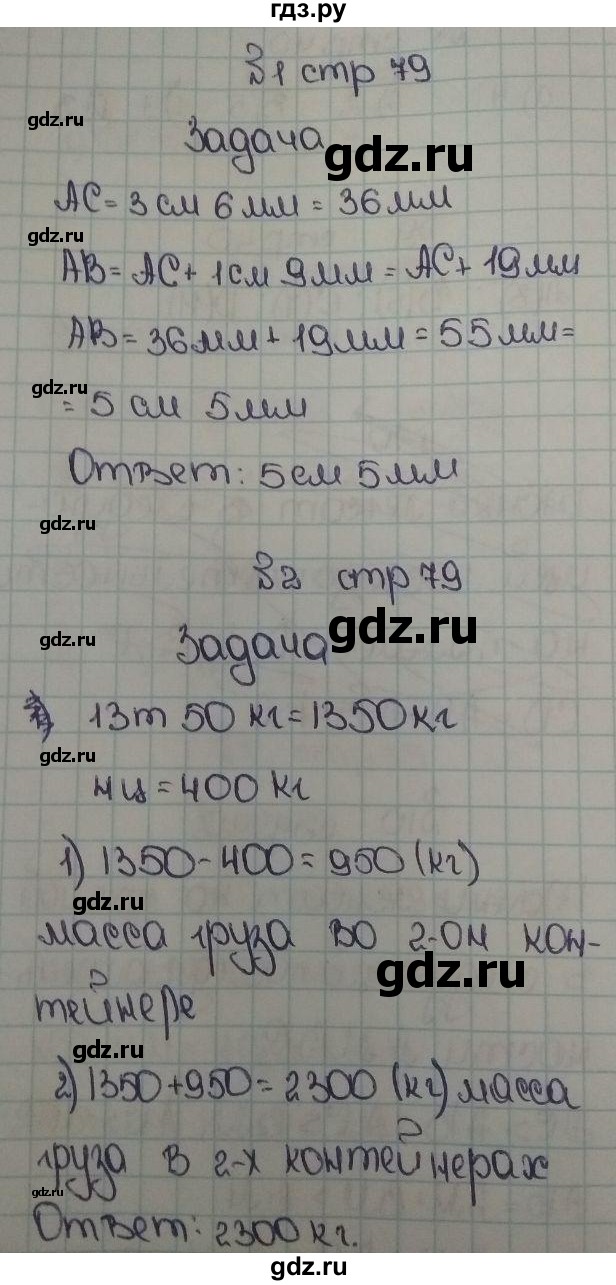 гдз.ру
В1 стр 79
gdz.ru
Задача
gdz.ru
АС = 3 см 6 мм = 36 мм
gdz.ru
АВ = АС + 1 см 9 мм = АС + 19 мм
АВ = 36 мм + 19 мм = 55 мм =
gdz.ru
= 5 см 5 мм
Ответ: 5 см 5 мм
gdz.ru
В2 стр 79
gdz.ru
gdz.ru
Задача
13 т 50 кг = 1350 кг
gdz.ru
4 ц = 400 кг
1) 1350 - 400 = 950 (кг)
gdz.ru
масса груза во 2-ом кон-
gdz.ru
тейнере
gdz.ru
2) 1350 + 950 = 2300 (кг) масса
груза в 2-х контейнерах
gdz.ru
Ответ: 2300 кг.
gdz.ru